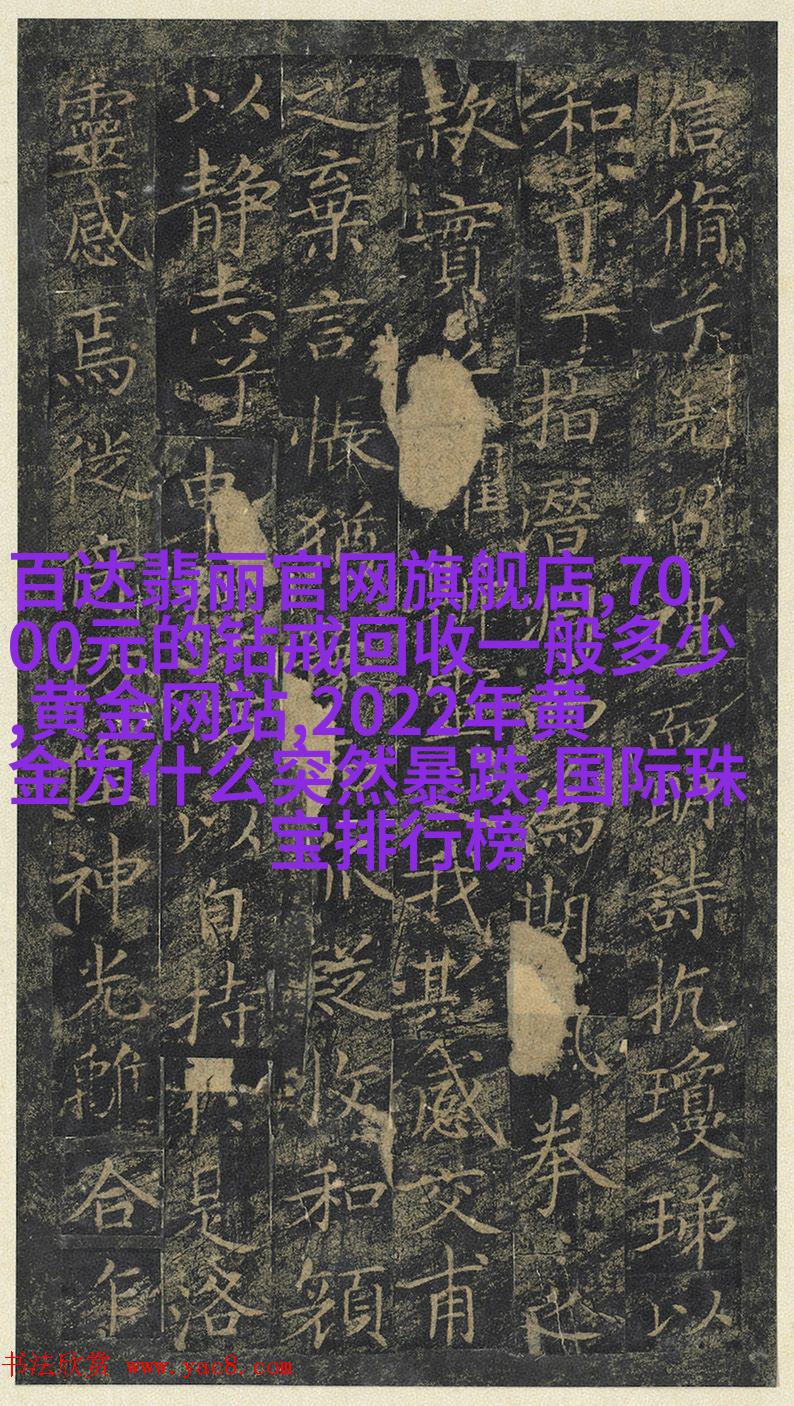 信脩兮羌習禮而明詩抗瓊珶以
和予兮指潛為期拳之
款實之懼我其感交甫
之棄言悵猶收和顔
以静志兮申以自持是洛
靈感焉徙神光離合乍
百达翡丽官网旗舰店,70
00元的钻戒回收一般多少
,黄金网站,2022年黄
金为什么突然暴跌,国际珠
宝排行榜
书法欣赏 www.yac8.com